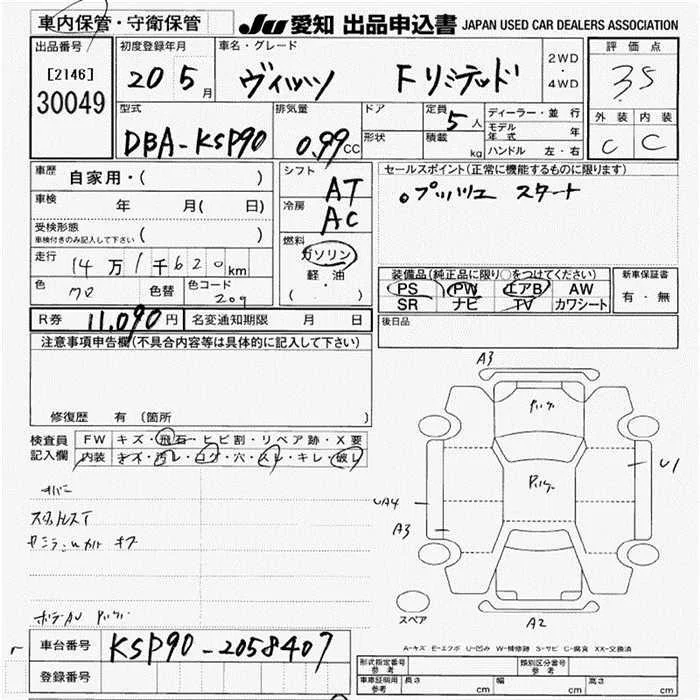 車内保管・守衛保管
JU 愛知 出品申込書 JAPAN USED CAR DEALERS ASSOCIATION
出品番号
[2146]
30049
初度登録年月
20 5月
車名・グレード
ヴィッツ Fリミテッド
2WD
・
4WD
評価点
3.5
外装 内装
C C
型式
DBA-KSP90
排気量
0.99 CC
ドア
形状
定員
5人
積載
kg
ディーラー・並行
モデル年式 年
ハンドル 左・右
車歴
自家用・( )
車検
年 月( 日)
受検形態
車検付きのみ記入して下さい ( )
走行
14万1千620km
色
クロ
色替
色コード
209
シフト
AT
冷房
AC
燃料
ガソリン
軽・油
( ・ )
セールスポイント(正常に機能するものに限ります)
。プッシュ スタート
装備品(純正品に限り○をつけてください)
PS PW エアB AW
SR ナビ TV カワシート
新車保証書
有・無
R券 11,090円
名変通知期限 月 日
後日品
注意事項申告欄(不具合内容等は具体的に記入して下さい)
修復歴 有(箇所 )
検査員記入欄
FW キズ・飛石・ヒビ割・リペア跡・X要
内装 キズ・汚レ・コゲ・穴・スレ・キレ・破レ
A3
U1
UA4
A3
A2
スペア
A-キズ E-エクボ U-凹み W-補修跡 S-サビ C-腐食 XX-交換済
車台番号
KSP90-2058407
登録番号
形式指定番号 参考
類別区分番号 参考
車庫証明用 参考
長さ cm 幅 cm 高さ cm